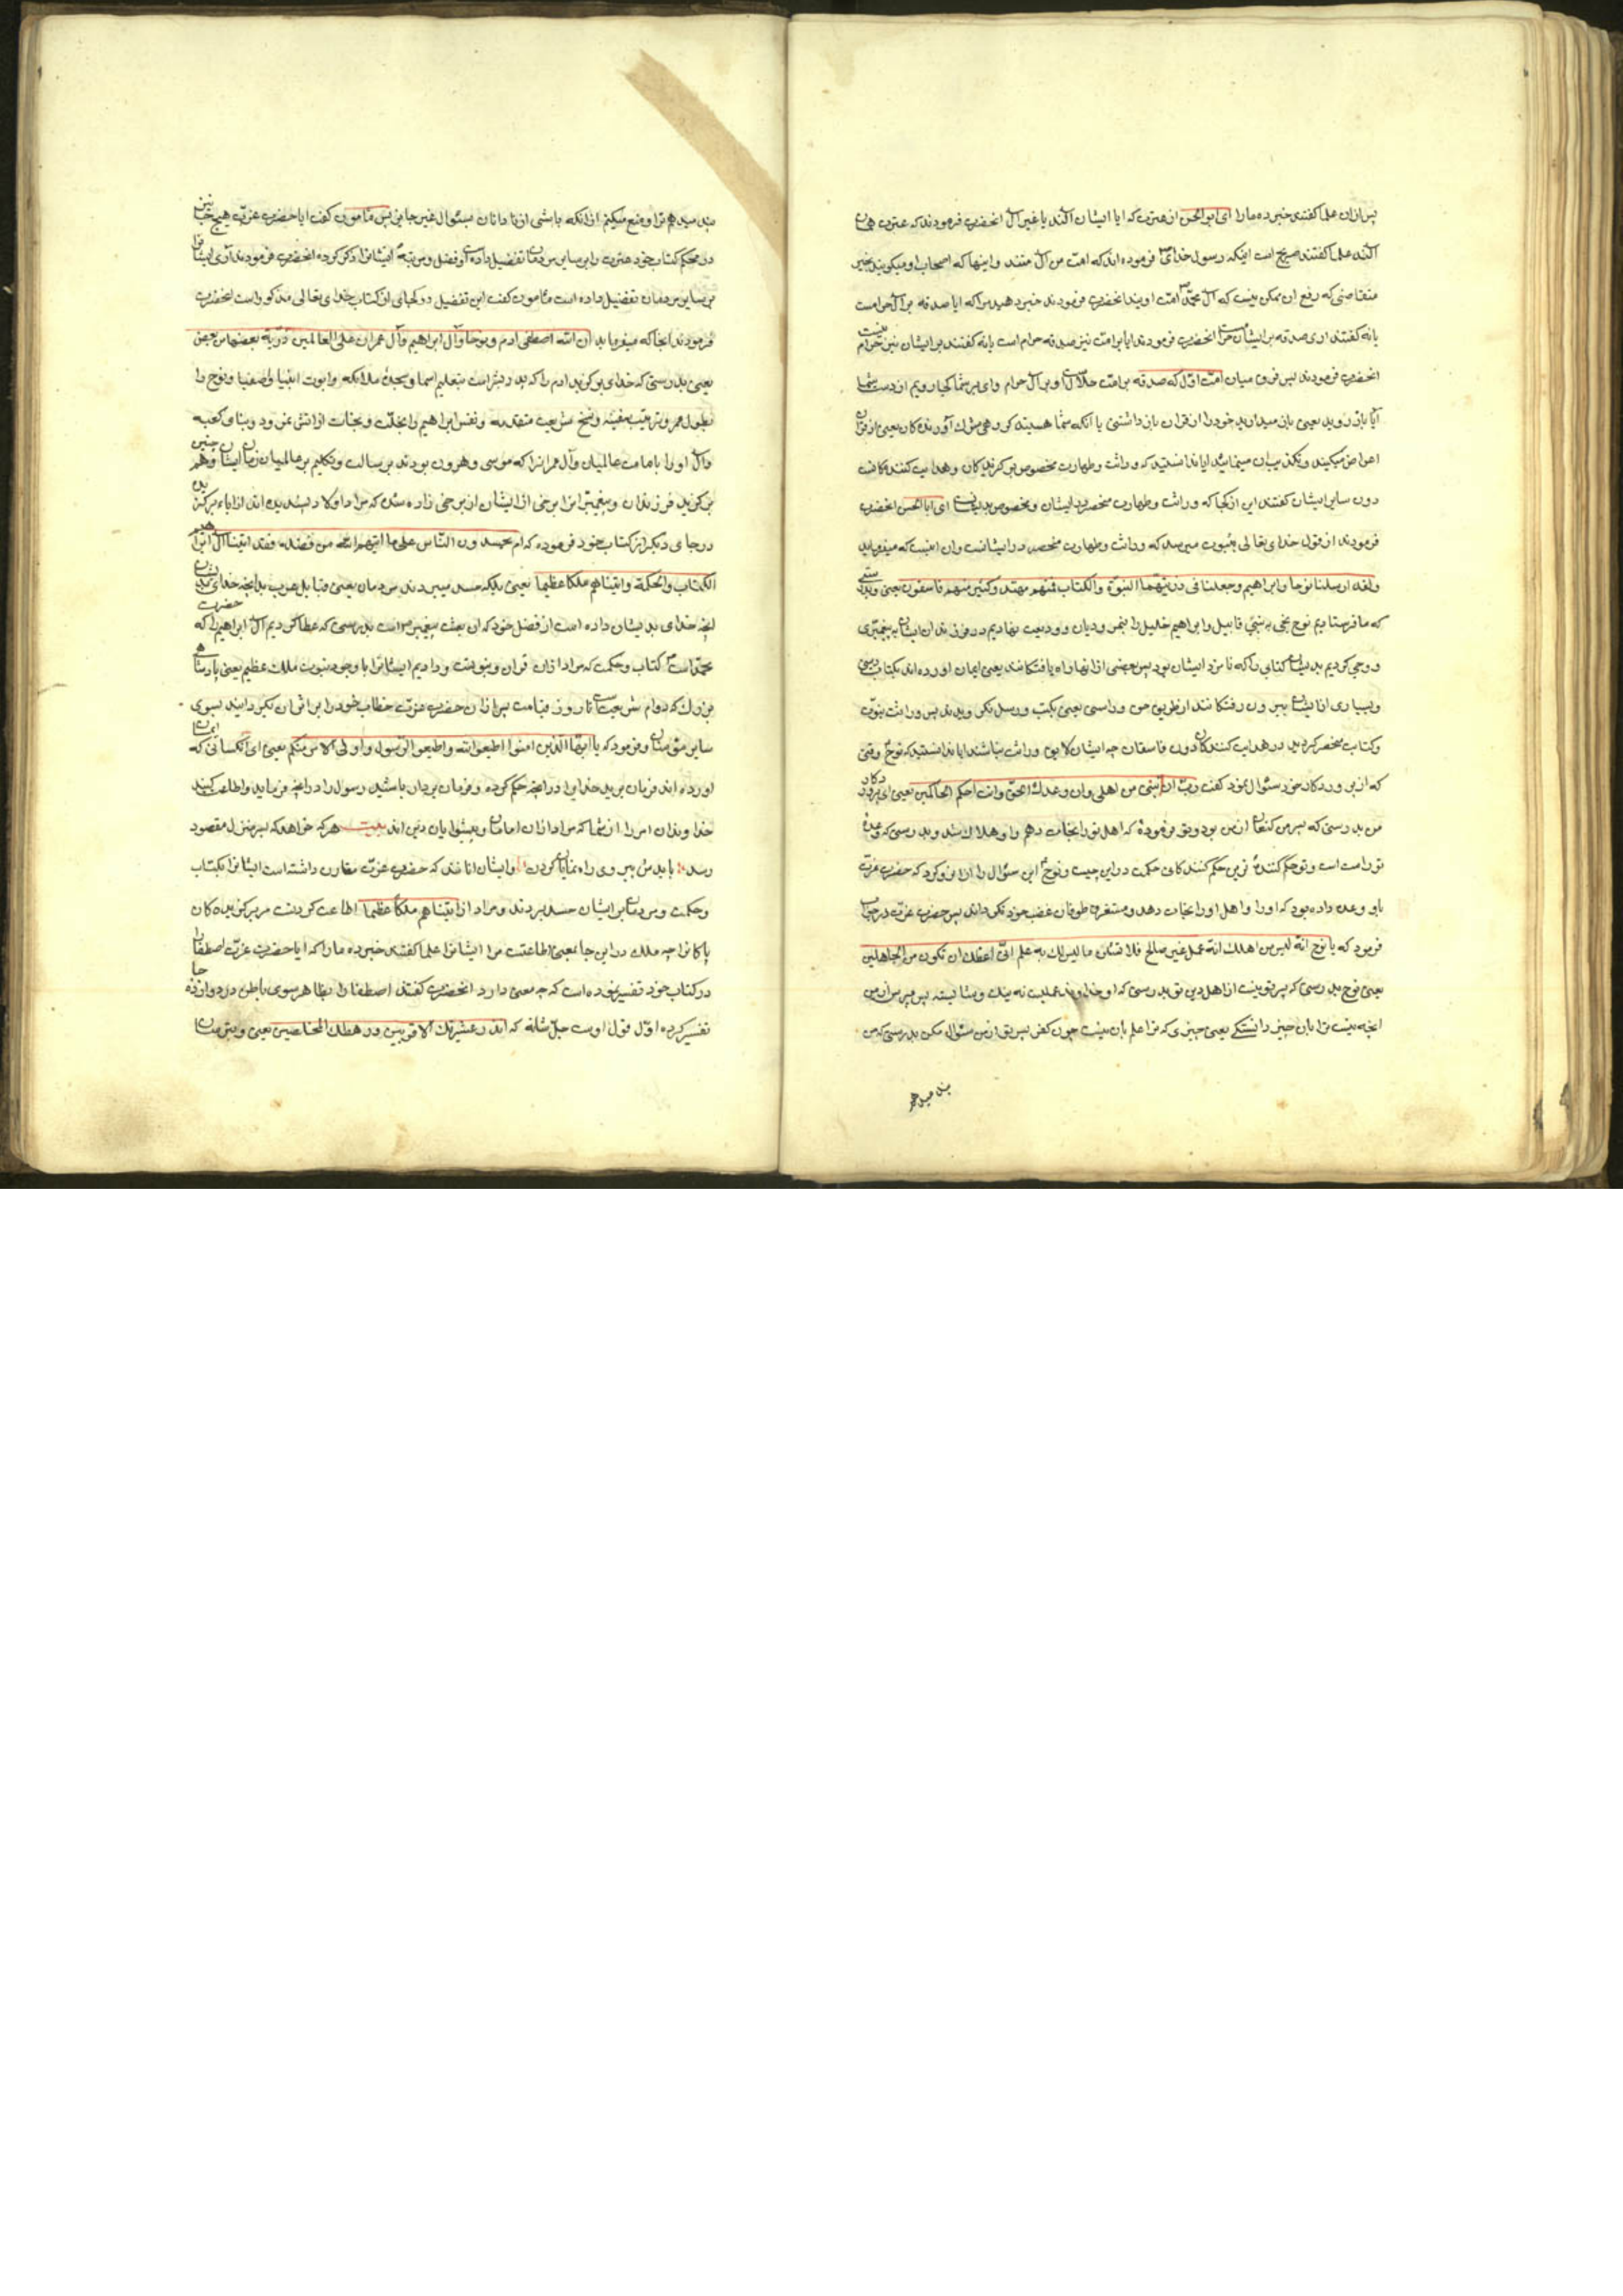 پس ازان علما کفتند خبر ده ما را ای ابو الحسن از عترت که ایا ایشان آلند یا غیر آل انحضرت فرمودند که عترت همان
آلند علما کفتند صحیح است اینکه رسول خدای فرموده اند که امت من آل منند و اینها که اصحاب او میکویند بخبر
که رفع ان ممکن نیست که آل محمد امت اویند انحضرت فرمودند خبر دهید مرا که ایا صدقه بر آل حرامست
یا نه کفتند اری صدقه بر ایشان حرام است انحضرت فرمودند ایا بر امت نیز صدقه حرام است یا نه کفتند بر ایشان نیز حرام نیست
انحضرت فرمودند اینس فرق میان امت اول که صدقه بر امت حلال است و بر آل حرام وای بر شما کجا میرویم از دست شما
آیا باز روید یعنی باز میدارید خود را از قران باز داشتنی یا آنکه شما هستید کروهی آورنده کان یعنی از قران
اعراض میکنید و تکذیب ان مینمائید ایا ندانستید که وراثت و طهارت مخصوص بر کزیدکان و هدایت کنندکانست
دون سایر ایشان کفتند این از کجا که وراثت و طهارت منحصر در ایشان و مخصوص بدیشان است ای ابا الحسن انحضرت
فرمودند از قول خدای تعالی بثبوت میرسد که وراثت و طهارت منحصر در ایشانست و ان اینست که میفرماید
ولقد ارسلنا نوحا و ابراهیم و جعلنا فی ذریتهما النبوة و الکتاب فمنهم مهتد و کثیر منهم فاسقون یعنی و بدرستی
که ما فرستادیم نوح نجی به بنی قابیل و ابراهیم خلیل را بنمرودیان و ودیعت نهادیم در فرزندان ایشان پیغمبری
و وحی کردیم بدیشان کتابی را که نامزد ایشان بود پس بعضی از انها راه یافتکانند یعنی ایمان اورده اند بکتاب و نبی
و بسیاری از ایشان بیرون رفتکانند از طریق حق و راستی یعنی بکتب و رسل نکرویدند پس وراثت نبوت
و کتاب منحصر کردید در هدایت کنندکان دون فاسقان چه ایشان لایق وراثت نباشند ایا ندانستید که نوح وقتی
که از پروردکار خود سئوال نمود کفت رب ان ابنی من اهلی و ان وعدک الحق و انت احکم الحاکمین یعنی ای پروردکار
من بدرستی که پسر من کنعان از من بود و تو فرمودهٔ که اهل تو را نجات دهم و او هلاک شد و بدرستی که وعدهٔ
تو راست است و تو حکم کنندهٔ ترین حکم کنندکانی حکمت در این چیست و نوح این سئوال را ازان رو کرد که حضرت عزت
باو وعده داده بود که او را و اهل او را نجات دهد و مستغرق طوفان غضب خود نکرداند پس حضرت عزت در جواب
فرمود که یا نوح انه لیس من اهلک انه عمل غیر صالح فلا تسئلن ما لیس لک به علم انی اعظک ان تکون من الجاهلین
یعنی نوح بدرستی که پسر تو نیست از اهل دین تو بدرستی که او خداوند عملیست نه نیک و نه شایسته پس مپرس از من
انچه نیست ترا بان چیز دانستکی یعنی چیزی که ترا علم بان نیست چون کفر پسر تو از من سئوال مکن بدرستی که من
پند میدهم
پند میدهم ترا و منع میکنم از انکه باشی از نادانان بسئوال غیر جایز پس مامون کفت ایا حضرت عزت هیچ جا
در محکم کتاب خود عترت را بر سایر مردمان تفضیل داده و فضل و مرتبهٔ ایشانرا ذکر کرده انحضرت فرمودند آری ایشانرا
بر سایر مردمان تفضیل داده است مامون کفت این تفضیل در کجای از کتاب خدای تعالی مذکور است انحضرت
فرمودند انجا که میفرماید ان الله اصطفی ادم و نوحا و آل ابراهیم و آل عمران علی العالمین ذریة بعضها من بعض
یعنی بدرستی که خدای بر کزید ادم را که پدر بشر است بتعلیم اسما و سجدهٔ ملائکه و ابوت انبیا و اصفیا و نوح را
بطول عمر و ترتیب سفینه و نسخ شریعت متقدمه و نفس ابراهیم را بخلت و نجات از اتش نمرود و بنای کعبه
و آل او را بامامت عالمیان و آل عمرانرا که موسی و هرون بودند برسالت و تکلیم بر عالمیان زمان ایشان و همچنین
بر کزید فرزندان و پیغمبران برخی از ایشان از برخی زاده شده که مراد اولاد پسندیده اند از اباء برکزیده
در جای دیکر از کتاب خود فرموده که ام یحسدون الناس علی ما اتیهم الله من فضله فقد اتینا آل ابراهیم
الکتاب و الحکمة و اتیناهم ملکا عظیما یعنی بلکه حسد میبردند مردمان یعنی قبایل عرب بدانچه خدای
انچه خدای بدیشان داده است از فضل خود که ان بعث پیغمبر است بدرستی که عطا کردیم آل ابراهیم را که حضرت
محمد است کتاب و حکمت که مراد ازان قران و نبوتست و دادیم ایشانرا با وجود نبوت ملک عظیم یعنی پادشاهی
بزرک که دوام شریعتست تا روز قیامت پس ازان حضرت عزت خطاب خود را بر اثر ان بکردانید بسوی
سایر مؤمنان و فرمود که یا ایها الذین امنوا اطیعوا الله و اطیعوا الرسول و اولی الامر منکم یعنی ای آنکسانی که ایمان
اورده اند فرمان برید خدایرا در انچه حکم کرده و فرمان بردار باشید رسول را در انچه فرماید و اطاعت کنید
خداوندان امر را از شما که مراد ازان امامان و پیشوایان دین اند بیت هر که خواهد که بسر منزل مقصود
رسد بایدش پیروی راه نمایان کردن و ایشان انانند که حضرت عزت مقارن داشته است ایشانرا بکتاب
و حکمت و مردمان بر ایشان حسد بردند و مراد از اتیناهم ملکا عظیما اطاعت کردنست مر برکزیده کان
پاکانرا چه ملک در این جا بمعنی اطاعتست مر ایشانرا علما کفتند خبر ده ما را که ایا حضرت عزت اصطفا را
در کتاب خود تفسیر نموده است که چه معنی دارد انحضرت کفتند اصطفا را بظاهر سوی باطن در دوازده جا
تفسیر کرده اول قول اوست جل شانه که انذر عشیرتک الاقربین و رهطک المخلصین یعنی و بترسان